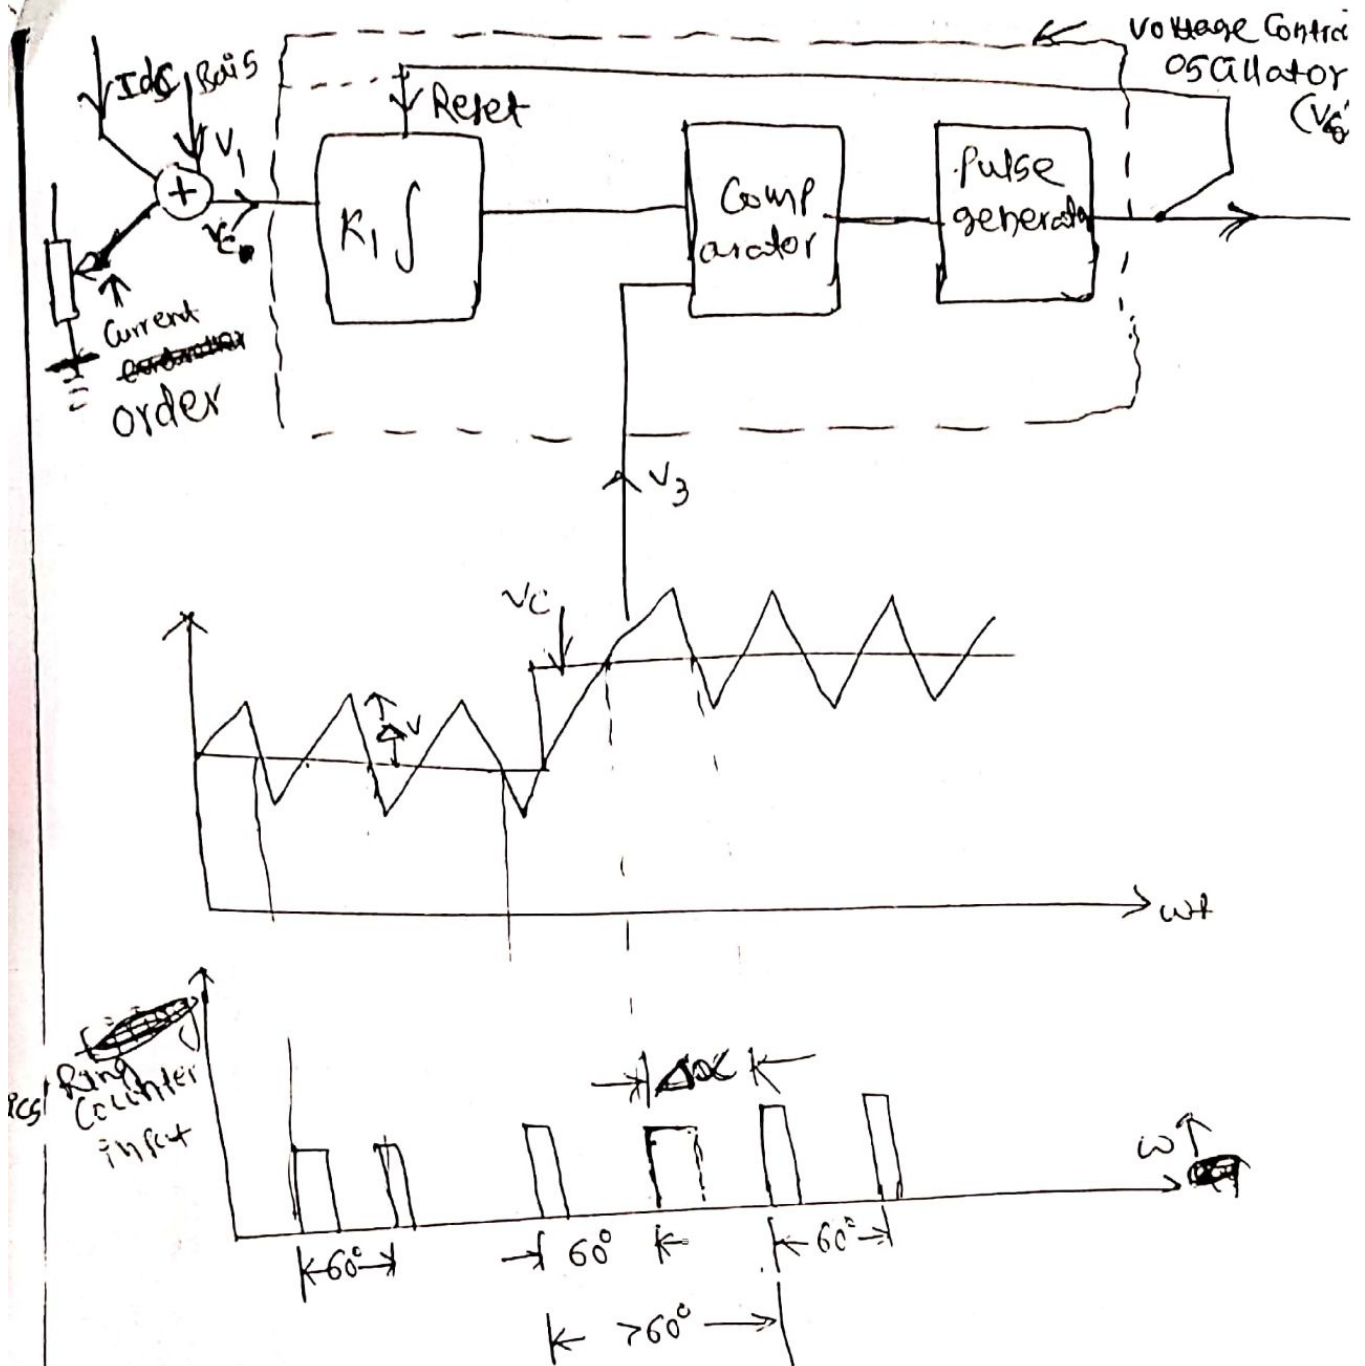 Voltage Contro
Oscillator
(Vc
Idc Bais
V1
Reset
Vc
K1 ∫
Comp
arator
Pulse
generator
+
Current
order
V3
Vc
ΔV
ωt
Ring
Counter
input
Δα
ω
60°
60°
60°
>60°